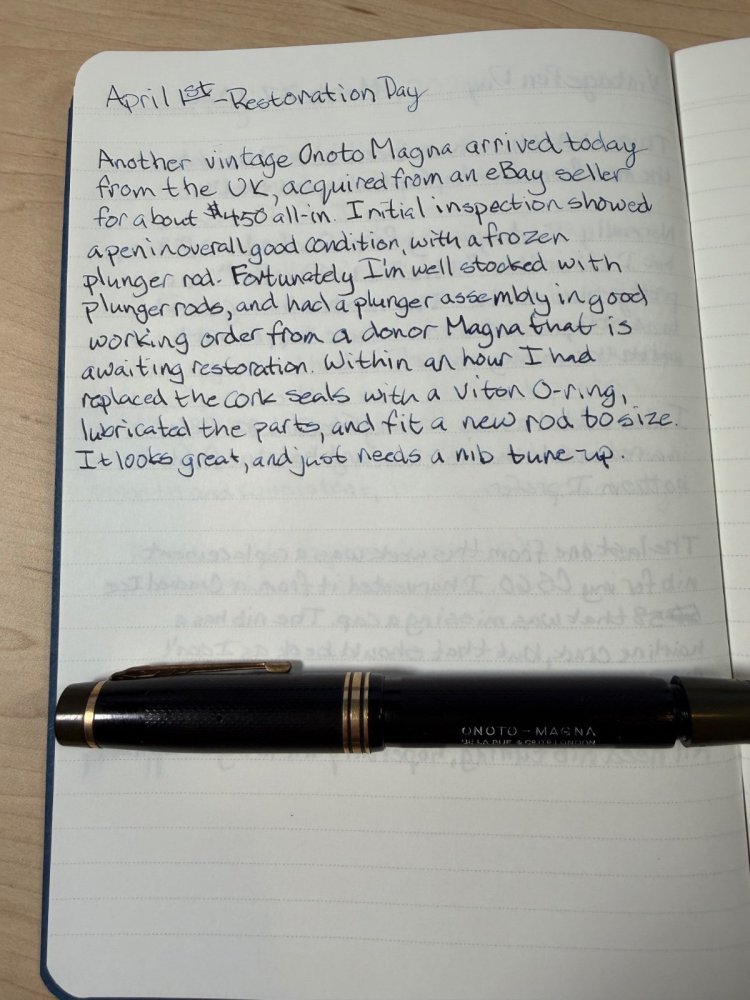 April 1st - Restoration Day
Another vintage Onoto Magna arrived today
from the UK, acquired from an eBay seller
for about $450 all-in. Initial inspection showed
a pen in overall good condition, with a frozen
plunger rod. Fortunately I'm well stocked with
plunger rods, and had a plunger assembly in good
working order from a donor Magna that is
awaiting restoration. Within an hour I had
replaced the cork seals with a Viton O-ring,
lubricated the parts, and fit a new rod to size.
It looks great, and just needs a nib tune-up.
ONOTO - MAGNA
DE LA RUE & CO LTD LONDON